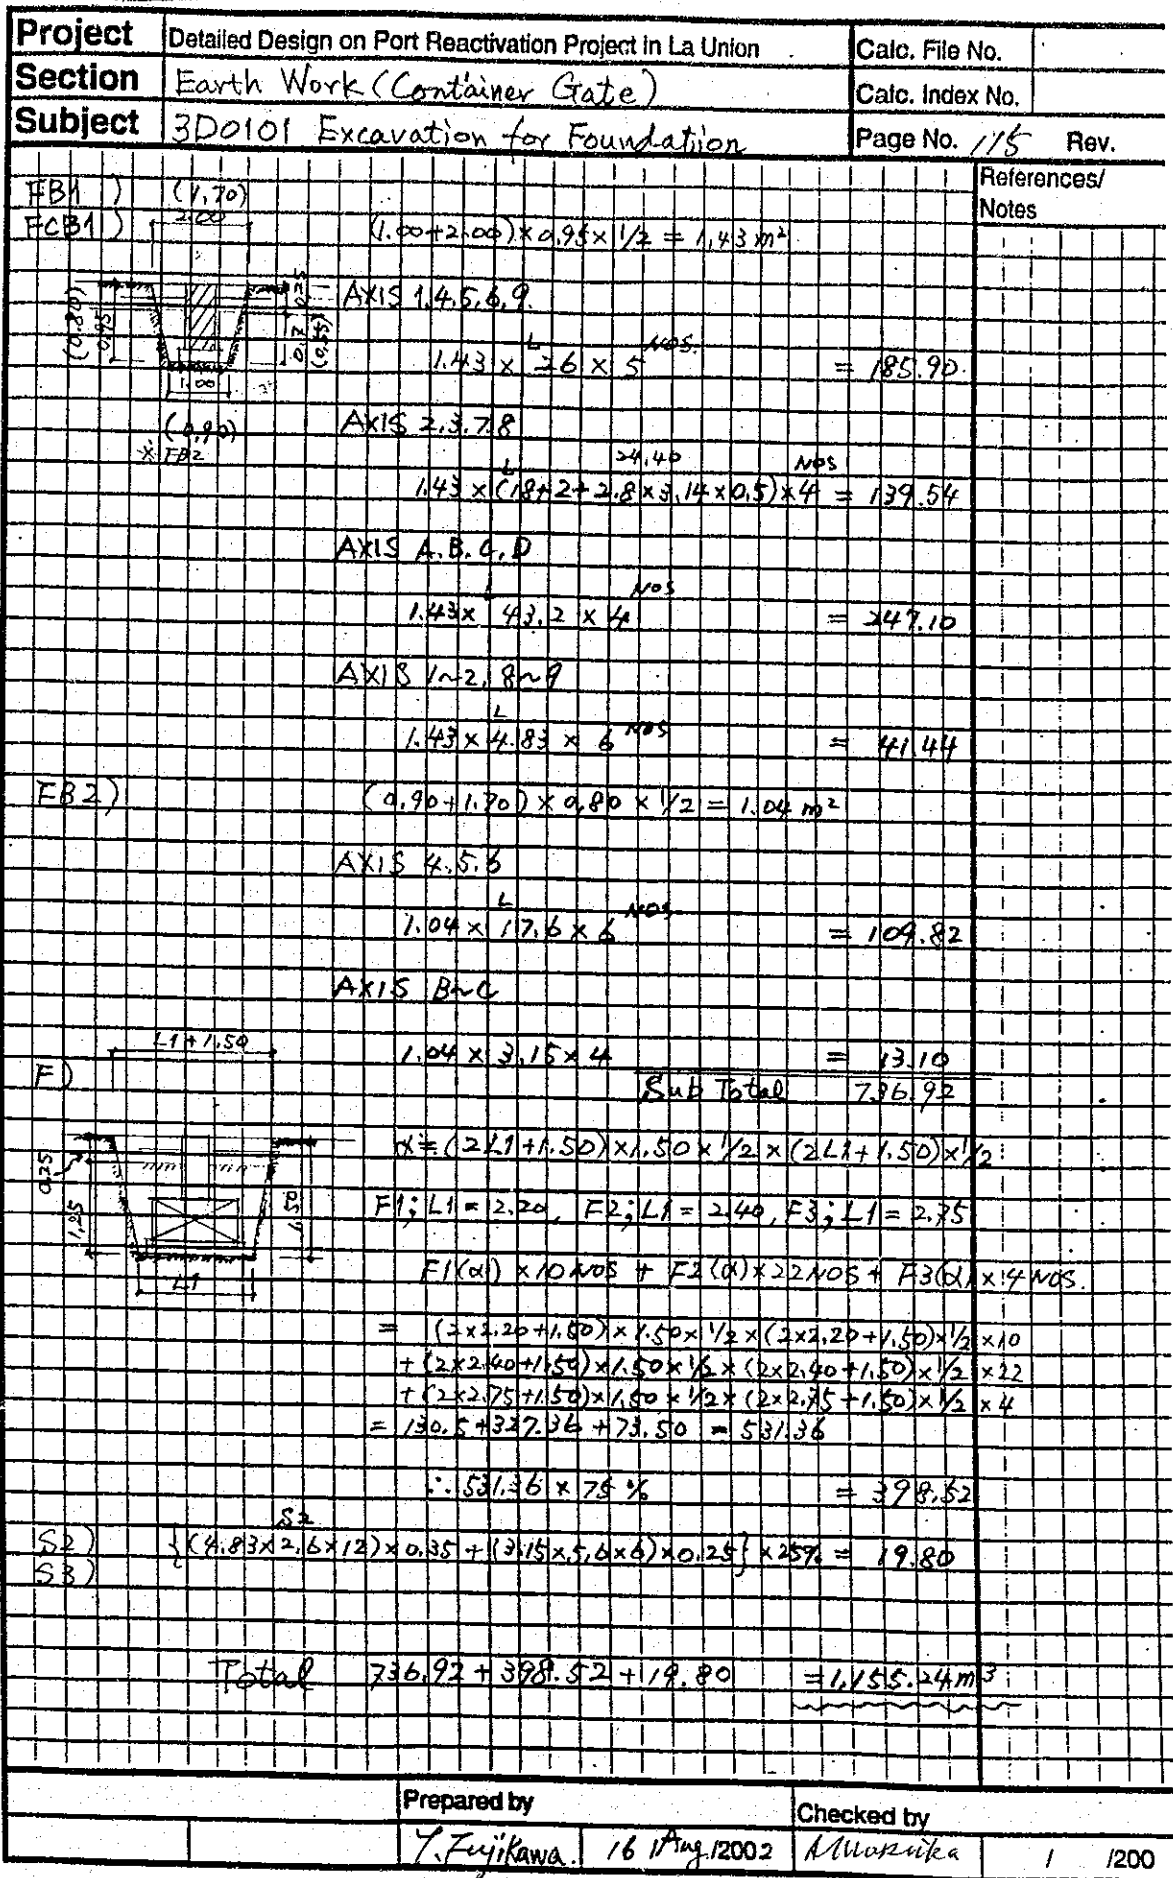 Project Detailed Design on Port Reactivation Project in La Union Calc. File No.
Section Earth Work (Container Gate) Calc. Index No.
Subject 3D0101 Excavation for Foundation Page No. 115 Rev.
References/
Notes
FB1 ) (1.70)
FCB1 ) 2.00 (1.00+2.00) × 0.95 × 1/2 = 1.43 m²
(0.80) 0.95 0.25 0.7 (0.55)
AXIS 1.4.5.6.9.
L NOS.
1.43 × 26 × 5 = 185.90
1.00
(0.90) AXIS 2.3.7.8
※ FB2
L 24.40 NOS
1.43 × (18+2+2.8×3.14×0.5)×4 = 139.54
AXIS A.B.C.D
L NOS
1.43 × 43.2 × 4 = 247.10
AXIS 1~2, 8~9
L
1.43 × 4.83 × 6 NOS = 41.44
FB2) (0.90+1.70) × 0.80 × 1/2 = 1.04 m²
AXIS 4.5.6
L
1.04 × 17.6 × 6 NOS = 109.82
AXIS B~C
L1+1.50
1.04 × 3.15 × 4 = 13.10
F) Sub Total 736.92
α = (2L1+1.50)×1.50×1/2 × (2L1+1.50)×1/2
0.25 1.25 1.50
F1; L1 = 2.20, F2; L1 = 2.40, F3; L1 = 2.75
L1
F1(α) ×10 NOS + F2(α)×22 NOS + F3(α)×4 NOS.
= (2×2.20+1.50)×1.50×1/2×(2×2.20+1.50)×1/2 ×10
+(2×2.40+1.50)×1.50×1/2×(2×2.40+1.50)×1/2 ×22
+(2×2.75+1.50)×1.50×1/2×(2×2.75+1.50)×1/2 ×4
= 130.5+327.36+73.50 = 531.36
∴ 531.36 × 75 % = 398.52
S2
S2) {(4.83×2.6×12)×0.35 + (3.15×5.6×6)×0.25} × 25% = 19.80
S3)
Total 736.92 + 398.52 + 19.80 = 1,155.24 m³
Prepared by Checked by
Y. Fujikawa. 16 / Aug / 2002 / /200